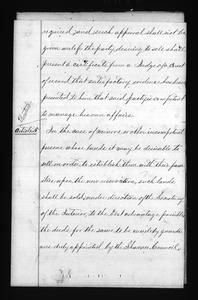 required and such approval shall not be
given unless the party desiring to sell shall
present a certificate from a Judge of a Court
of record that satisfactory evidence has been
presented to him that said party is competent
to manage his own affairs.
Article
In the case of minors or other incompetent
persons whose lands it may be desirable to
sell in order to establish them with their fami
lies upon the new reservation, such lands
shall be sold under direction of the Secretary
of the Interior, to the best advantage possible
the deeds for the same to be made by guardi
ans duly appointed by the Shawnee Council.